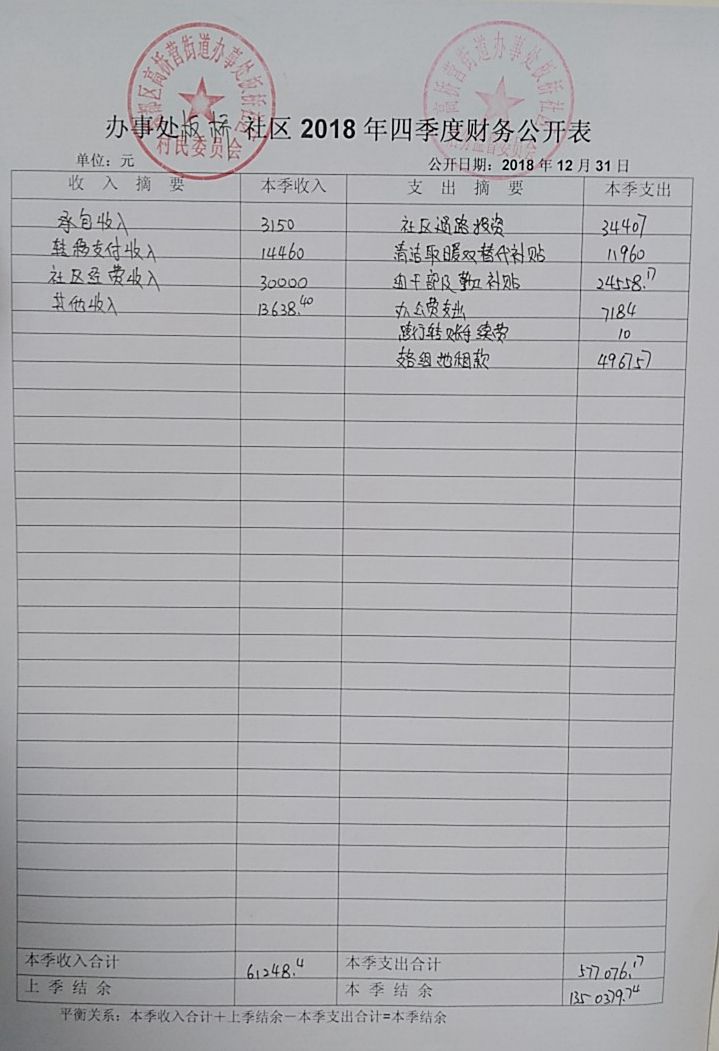 高桥营街道办事处板桥社区
村民委员会
高桥营街道办事处板桥社区
办事处板桥社区2018年四季度财务公开表
单位：元 公开日期：2018年12月31日
收入摘要 本季收入 支出摘要 本季支出
承包收入 3150 社区道路投资 34407
转移支付收入 14460 清洁取暖双替代补贴 11960
社区经费收入 30000 组干部及勤工补贴 24558.17
其他收入 13638.40 办公费支出 7184
跨行转账手续费 10
各组地租款
本季收入合计 61248.4 本季支出合计 577076.17
上季结余 本季结余 1350379.74
平衡关系：本季收入合计＋上季结余－本季支出合计=本季结余